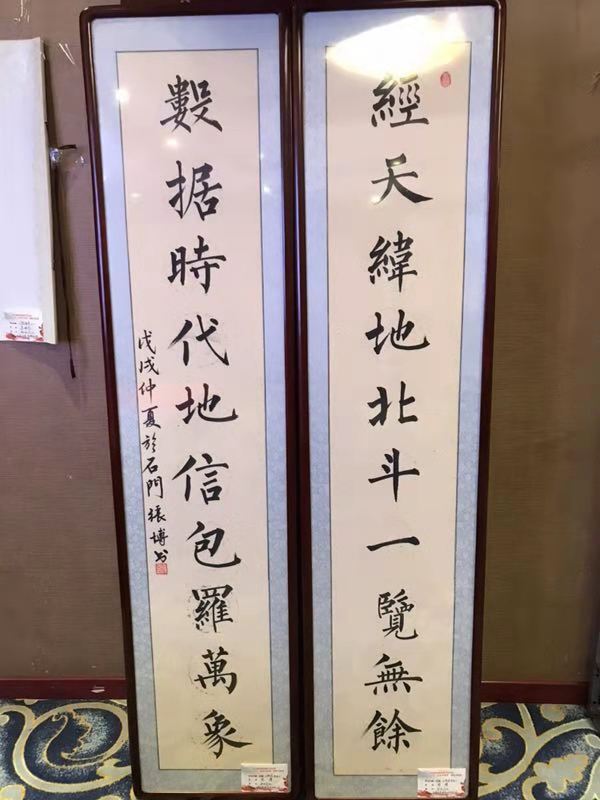 經天緯地北斗一覽無餘
數据時代地信包羅萬象
戊戌仲夏於石門振博书